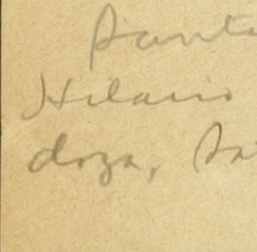 Santa
Hilario
doza, Sa